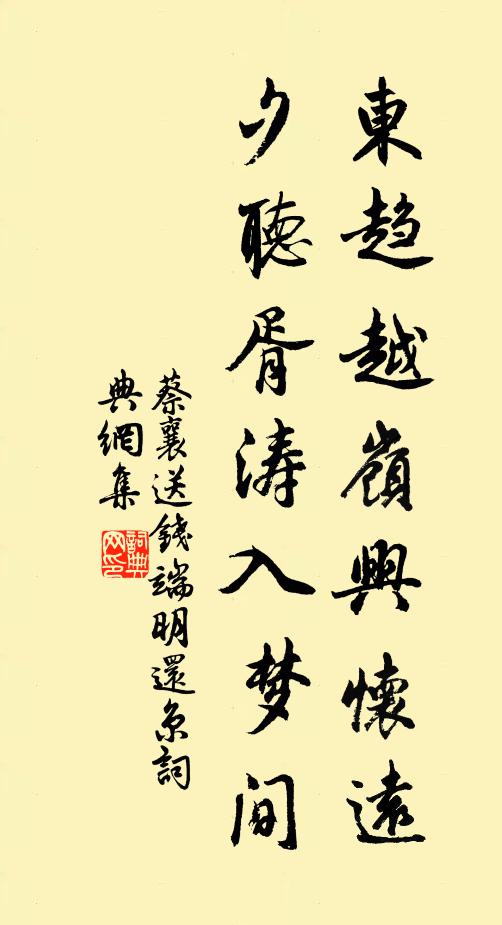 東趋越嶺興懷遠
夕聽胥涛入梦间
蔡襄送錢端明還京詞
典網集
詞典网印